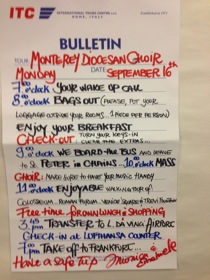 ITC
INTERNATIONAL TOURS CENTRE S.r.l.
ROME, ITALY
BULLETIN
TOUR MONTEREY DIOCESAN CHOIR
MONDAY DATE SEPTEMBER 16th
7:00 o'clock YOUR WAKE UP CALL
8:00 o'clock BAGS OUT (PLEASE, PUT YOUR
LUGGAGE OUTSIDE YOUR ROOMS... 1 PIECE PER PERSON)
ENJOY YOUR BREAKFAST
CHECK-OUT TURN YOUR KEYS-IN
CLEAR THE EXTRAS...
9:00 o'clock WE BOARD THE BUS AND
TO ST. PETER IN CHAINS... 10:00 o'clock MASS
CHOIR: MAKE SURE TO HAVE YOUR MUSIC HANDY
11:00 o'clock ENJOYABLE WALKING TOUR OF
COLOSSEUM, ROMAN FORUM, VENICE SQUARE, TREVI
Free time for OWN LUNCH & SHOPPING
3:45 pm TRANSFER TO L. DA VINCI AIRPORT
CHECK-IN AT LUFTHANSA COUNTER
7:00 pm TAKE OFF TO FRANKFURT...
Have a safe trip